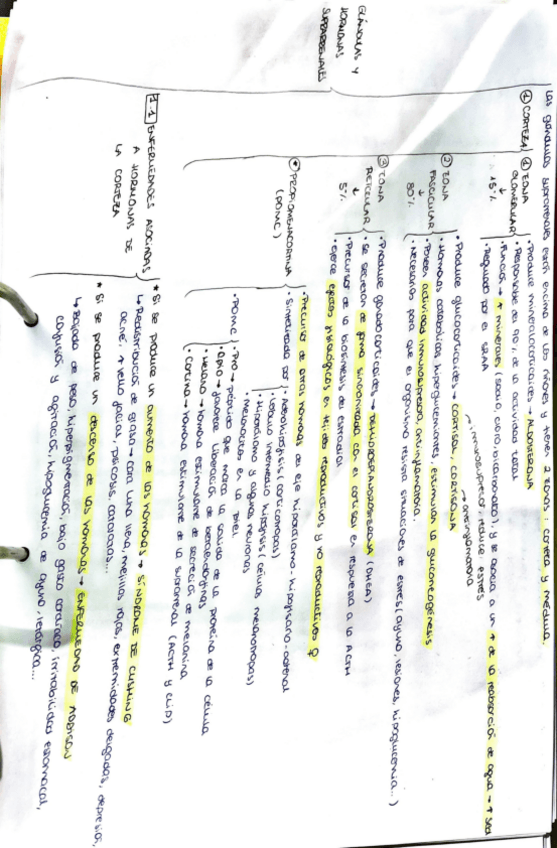 Las glándulas suprarrenales están encima de los riñones y tienen 2 zonas: corteza y médula.
GLÁNDULAS Y
HORMONAS
SUPRARRENALES
① CORTEZA
① ZONA
GLOMERULAR
↓
15%
• Produce mineralocorticoides → ALDOSTERONA
• Responsable del 90% de la actividad total
• Función → ↑ minerales (sodio, cloro, bicarbonato), y se asocia a un ↑ de la reabsorción de agua → ↑ sed
• Regulado por el SRAA
② ZONA
FASCICULAR
↓
80%
• Produce glucocorticoides → CORTISOL, CORTISONA
→ antiinflamatoria
→ inmunosupresor, reduce estrés
• Hormonas catabólicas, hiperglucemiantes, estimulan la gluconeogénesis
• Poseen actividad inmunosupresora, antiinflamatoria.
• Necesarios para que el organismo resista situaciones de estrés (ayuno, lesiones, hipoglucemia...)
③ ZONA
RETICULAR
↓
5%
• Produce gonadocorticoides → DEHIDROEPIANDROSTERONA (DHEA)
• Se secretan de forma sincronizada con el cortisol en respuesta a la ACTH
• Precursor de la biosíntesis del estradiol
• Ejerce efectos fisiológicos en tejido reproductivos y no reproductivos ♀
• PROPIOMELANOCORTINA
(POMC)
• Precursor de otras hormonas del eje hipotálamo-hipofisario-adrenal
• Sintetizada por
• Adenohipófisis (corticotropas)
• Lóbulo intermedio hipófisis (células melanotropas)
• Hipotálamo y algunas neuronas
• Melanocitos en la piel
• POMC
• Pro → péptido que marca la salida de la proteína de la célula
• Opio → favorece liberación de betaendorfinas
• Melano → hormona estimulante de secreción de melanina
• Cortina → hormona estimulante de la suprarrenal (ACTH y CLIP)
1.1 ENFERMEDADES ASOCIADAS
A HORMONAS DE
LA CORTEZA
* Si se produce un aumento de las hormonas → SÍNDROME DE CUSHING
↳ Redistribución de grasa → cara luna llena, mejillas rojas, extremidades delgadas, depresión,
acné, ↑ vello facial, psicosis, cataratas...
* Si se produce un descenso de las hormonas → ENFERMEDAD DE ADDISON
↳ Bajada de peso, hiperpigmentación, bajo gasto cardíaco, irritabilidad estomacal,
confusión y agitación, hipoglucemia de ayuno, letargia...